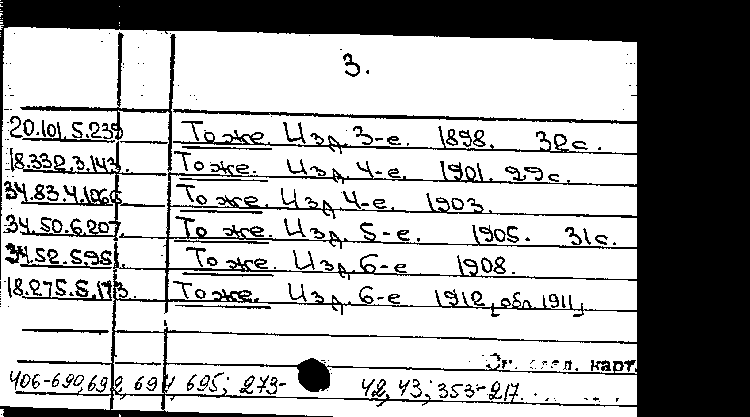 3.
20.101.5.239 То же. Изд. 3-е. 1898. 32с.
18.332.3.143. То же. Изд. 4-е. 1901. 29с.
34.83.4.1066 То же. Изд. 4-е. 1903.
34.50.6.207. То же. Изд. 5-е. 1905. 31с.
34.52.5.951. То же. Изд. 6-е 1908.
18.275.5.173. То же. Изд. 6-е 1912 [обл. 1911]
карт.
406-690, 692, 694, 695; 273- 42, 43; 353-217.